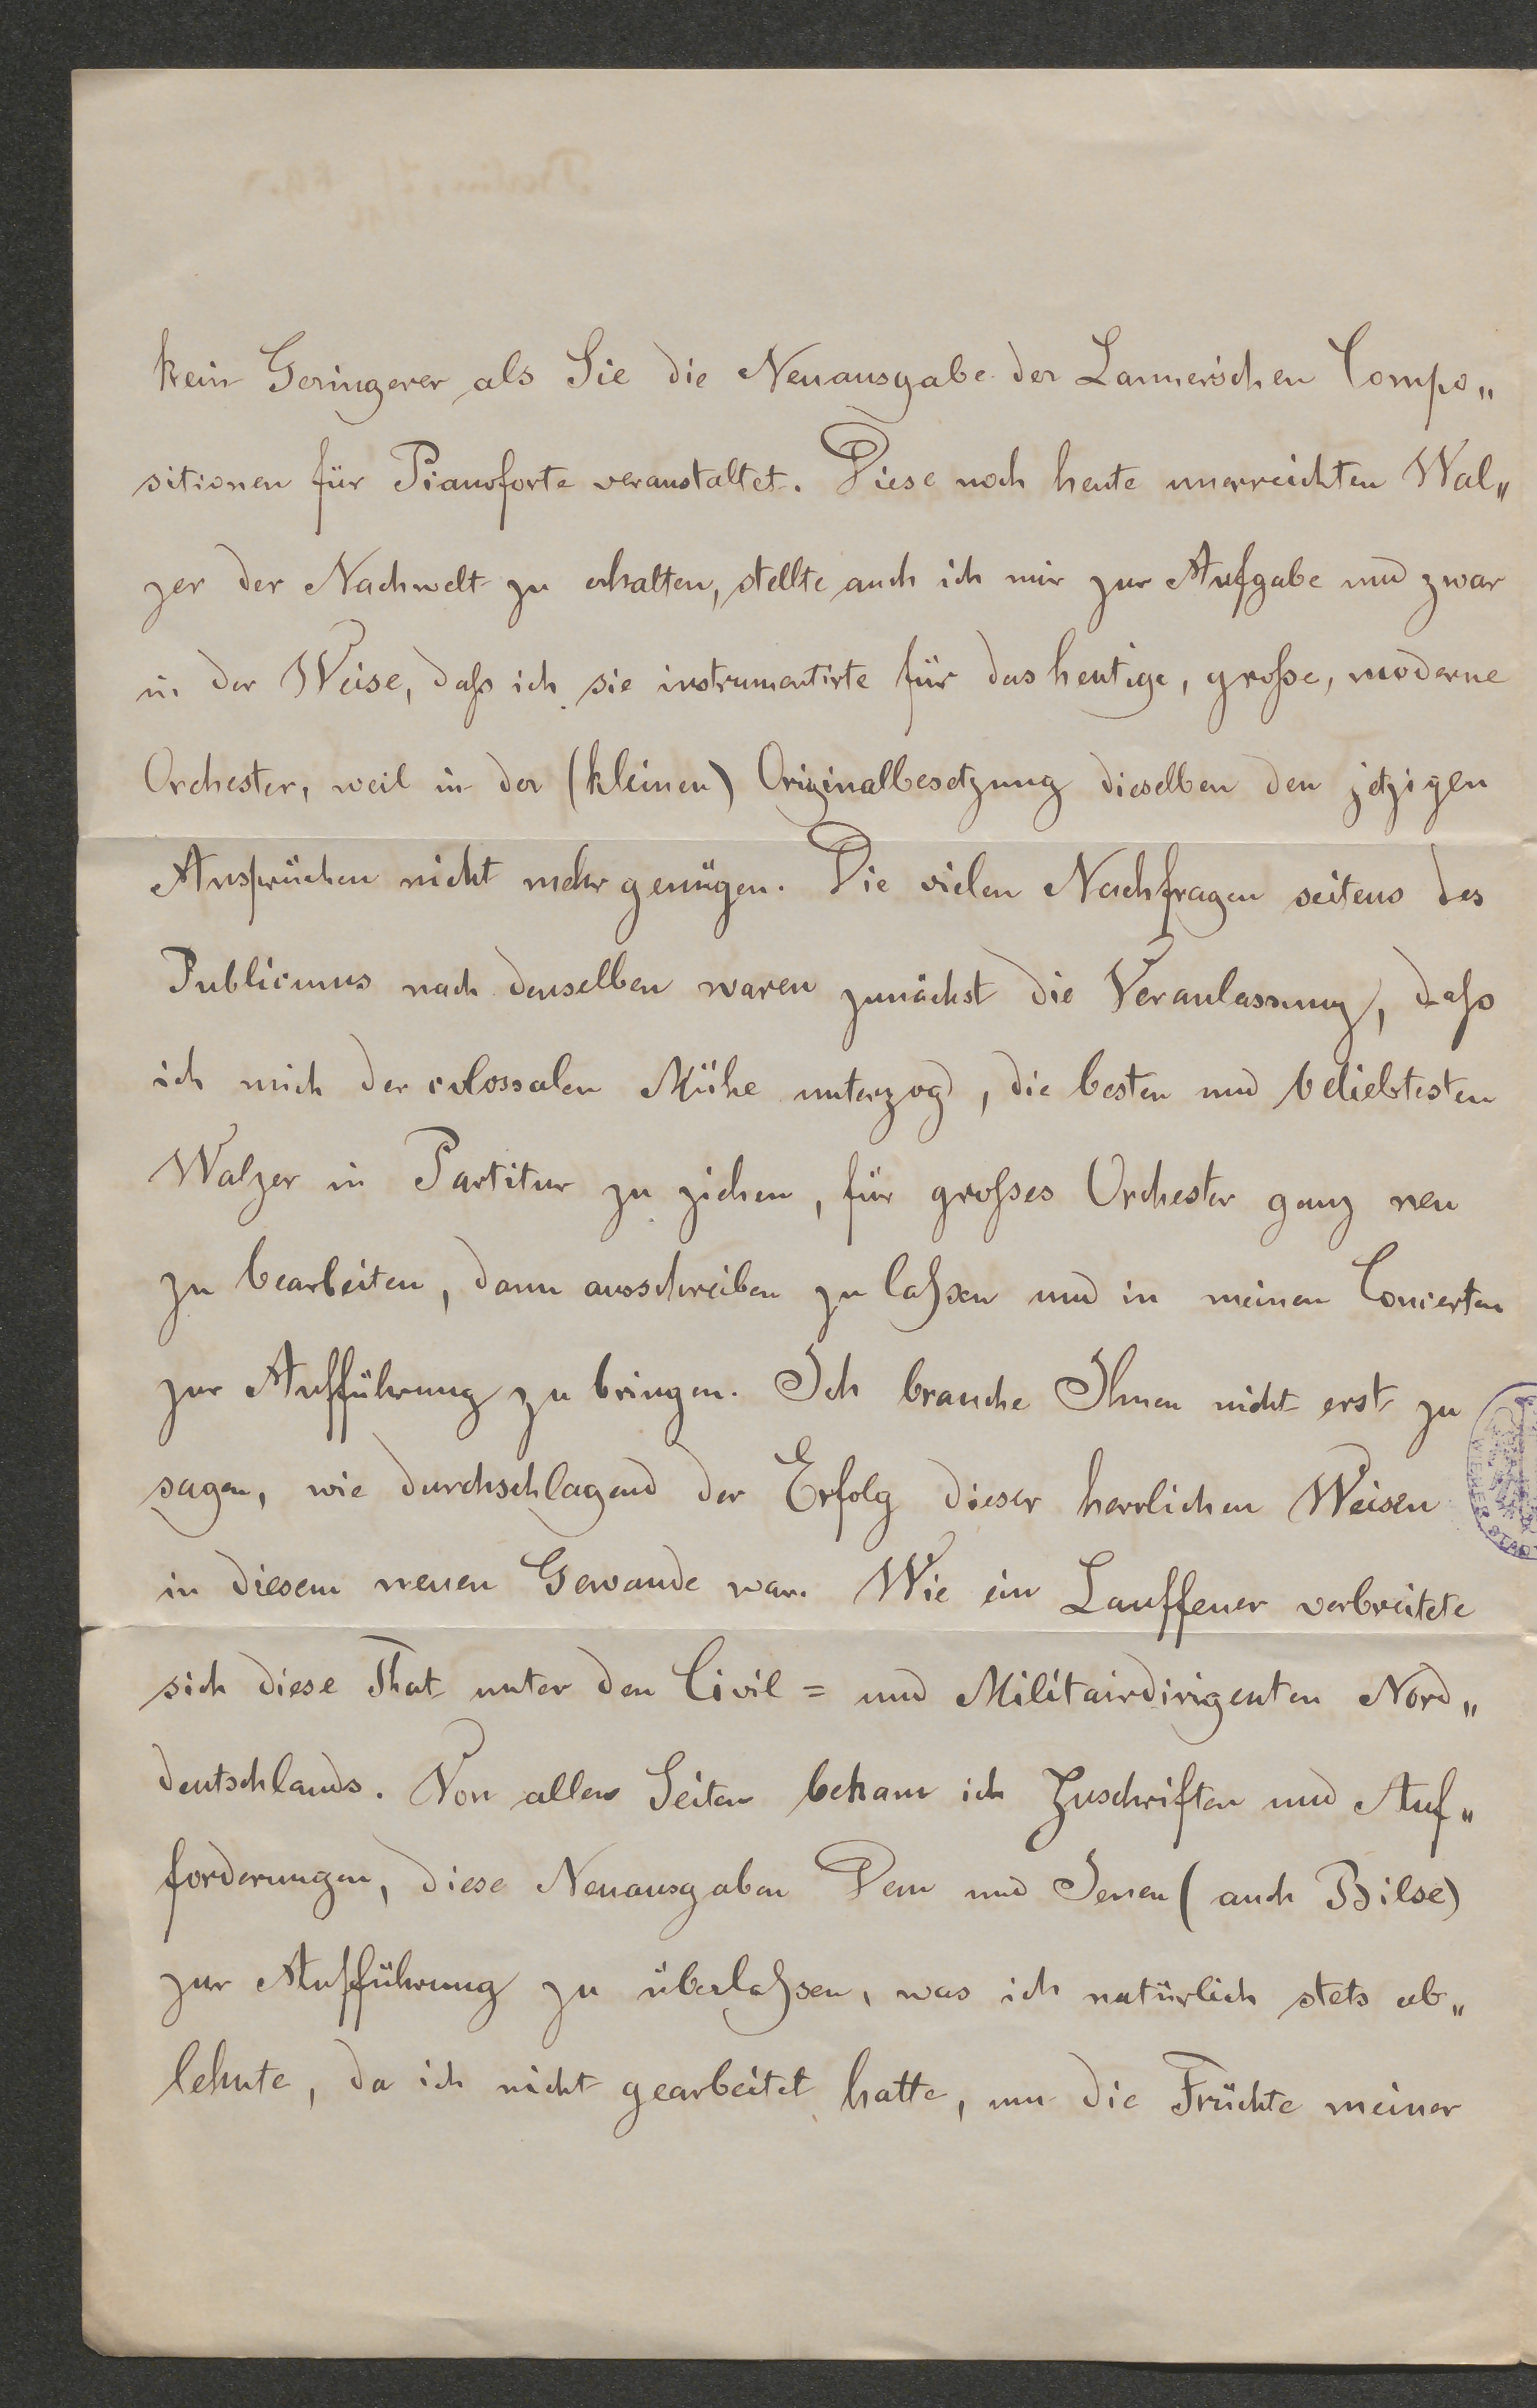 kein Geringerer als Sie die Neuausgabe der Lanner'schen Compo„
sitionen für Pianoforte veranstaltet. Diese noch heute unerreichten Wal„
zer der Nachwelt zu erhalten, stellte auch ich mir zur Aufgabe und zwar
in der Weise, daß ich sie instrumentirte für das heutige, große, moderne
Orchester, weil in der (kleinen) Originalbesetzung dieselben den jetzigen
Ansprüchen nicht mehr genügen. Die vielen Nachfragen seitens des
Publicums nach denselben waren zunächst die Veranlassung, daß
ich mich der colossalen Mühe unterzog, die besten und beliebtesten
Walzer in Partitur zu ziehen, für großes Orchester ganz neu
zu bearbeiten, dann ausschreiben zu laßen und in meinen Concerten
zur Aufführung zu bringen. Ich brauche Ihnen nicht erst zu
sagen, wie durchschlagend der Erfolg dieser herrlichen Weisen
in diesem neuen Gewande war. Wie ein Lauffeuer verbreitete
sich diese That unter den Civil= und Militairdirigenten Nord„
deutschlands. Von allen Seiten bekam ich Zuschriften und Auf„
forderungen, diese Neuausgaben Dem und Jenen (auch Bilse)
zur Aufführung zu überlaßen, was ich natürlich stets ab„
lehnte, da ich nicht gearbeitet hatte, um die Früchte meiner